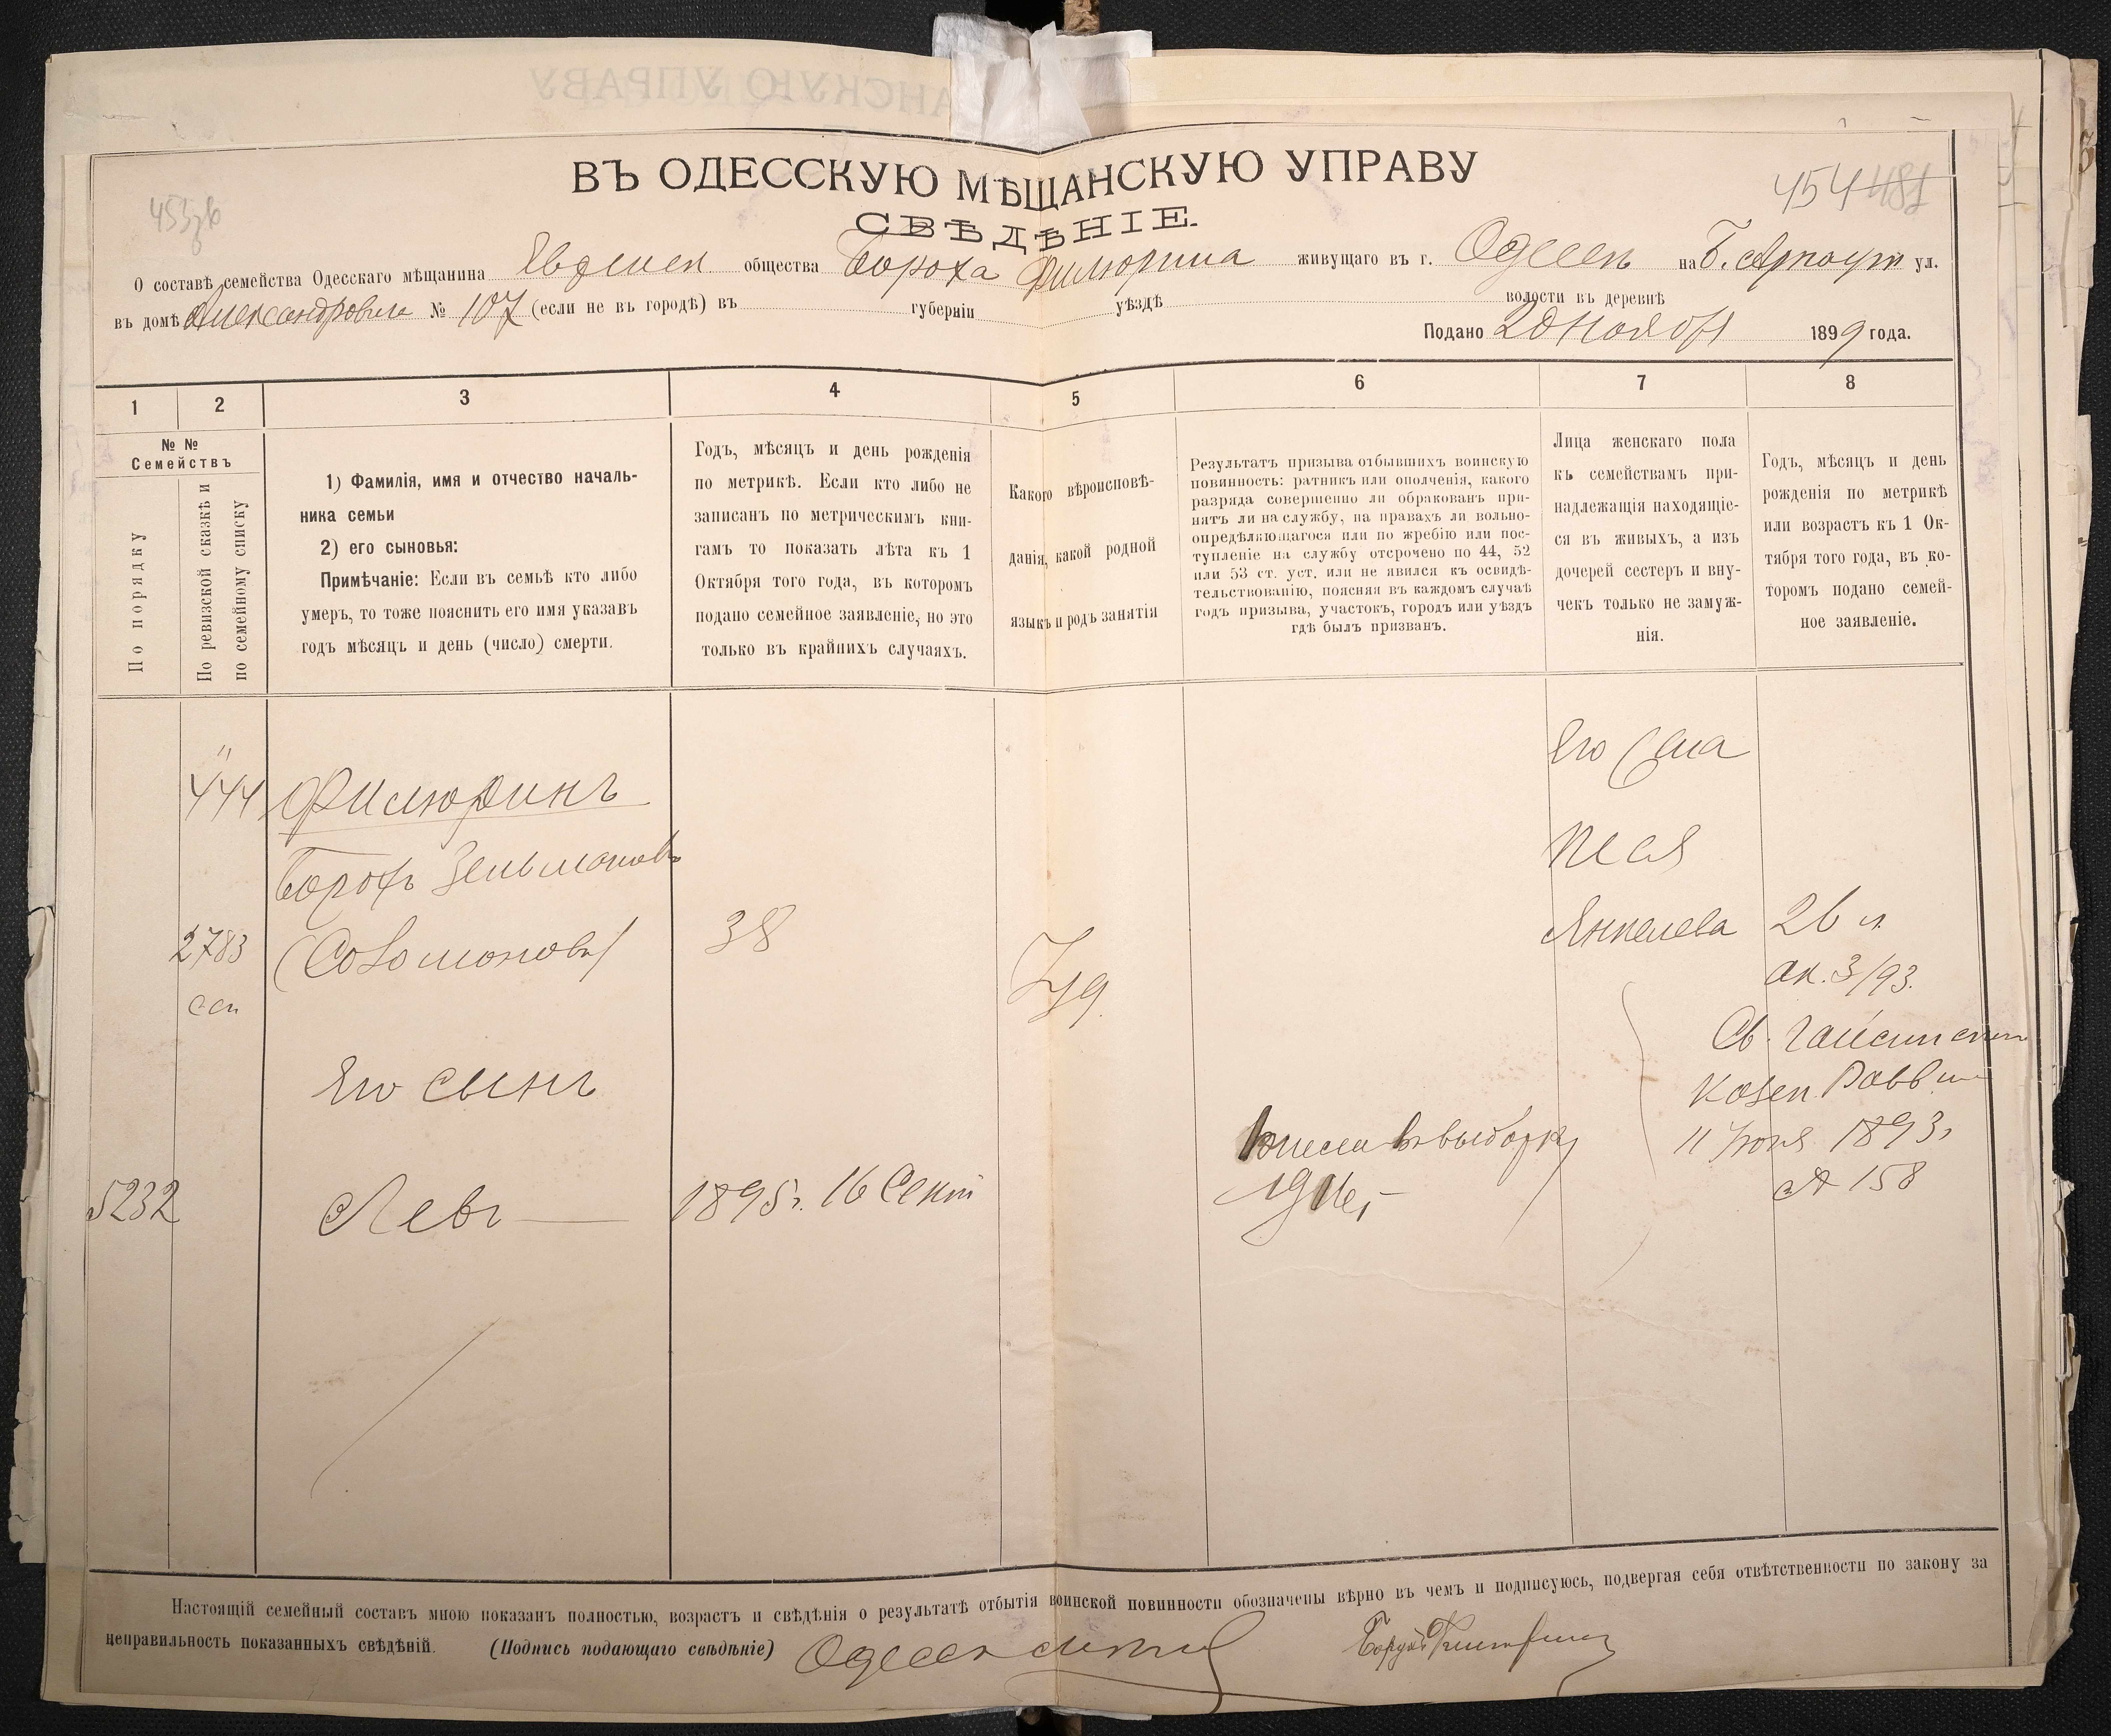 ВЪ ОДЕССКУЮ МѢЩАНСКУЮ УПРАВУ
СВѢДѢНІЕ.
454 481
О составѣ семейства Одесскаго мѣщанина Евреиск общества Бороха Филюрина живущаго въ г. Одессѣ на Б. Арнаут ул.
въ домѣ Александровича № 107 (если не въ городѣ) въ губерніи уѣздѣ волости въ деревнѣ
Подано 20 Нояб 1899 года.
1 2 3 4 5 6 7 8
№ № Семействъ
По порядку
По ревизской сказкѣ и по семейному списку
1) Фамилія, имя и отчество началь-
ника семьи
2) его сыновья:
Примѣчаніе: Если въ семьѣ кто либо
умеръ, то тоже пояснить его имя указавъ
годъ мѣсяцъ и день (число) смерти.
Годъ, мѣсяцъ и день рожденія
по метрикѣ. Если кто либо не
записанъ по метрическимъ кни-
гамъ то показать лѣта къ 1
Октября того года, въ которомъ
подано семейное заявленіе, но это
только въ крайнихъ случаяхъ.
Какого вѣроисповѣ-
данія, какой родной
языкъ и родъ занятія
Результатъ призыва отбывшихъ воинскую
повинность: ратникъ или ополченія, какого
разряда совершенно ли обракованъ при-
нятъ ли на службу, на правахъ ли вольно-
опредѣляющагося или по жребію или пос-
тупленіе на службу отсрочено по 44, 52
или 53 ст. уст. или не явился къ освидѣ-
тельствованію, поясняя въ каждомъ случаѣ
годъ призыва, участокъ, городъ или уѣздъ
гдѣ былъ призванъ.
Лица женскаго пола
къ семействамъ при-
надлежащія находящіе-
ся въ живыхъ, а изъ
дочерей сестеръ и вну-
чекъ только не замуж-
нія.
Годъ, мѣсяцъ и день
рожденія по метрикѣ
или возрастъ къ 1 Ок-
тября того года, въ ко-
торомъ подано семей-
ное заявленіе.
444 Филюринъ
Борохъ Зельманов
2783 (Соломонов) 38 Іуд.
сп
Его жена
Песя
Янкелева 26 л.
ак. 3/93.
Св. Гайсинск
Казен. Раввин
11 Іюня 1893 г
№ 158
Его сынъ
5232 Левъ 1895 г. 16 Сент
внесен въ выборку
Настоящій семейный составъ мною показанъ полностью, возрастъ и свѣдѣнія о результатѣ отбытія воинской повинности обозначены вѣрно въ чемъ и подписуюсь, подвергая себя отвѣтственности по закону за
неправильность показанныхъ свѣдѣній. (Подпись подающаго свѣдѣніе) Одесск мѣщ Борухъ Филюринъ